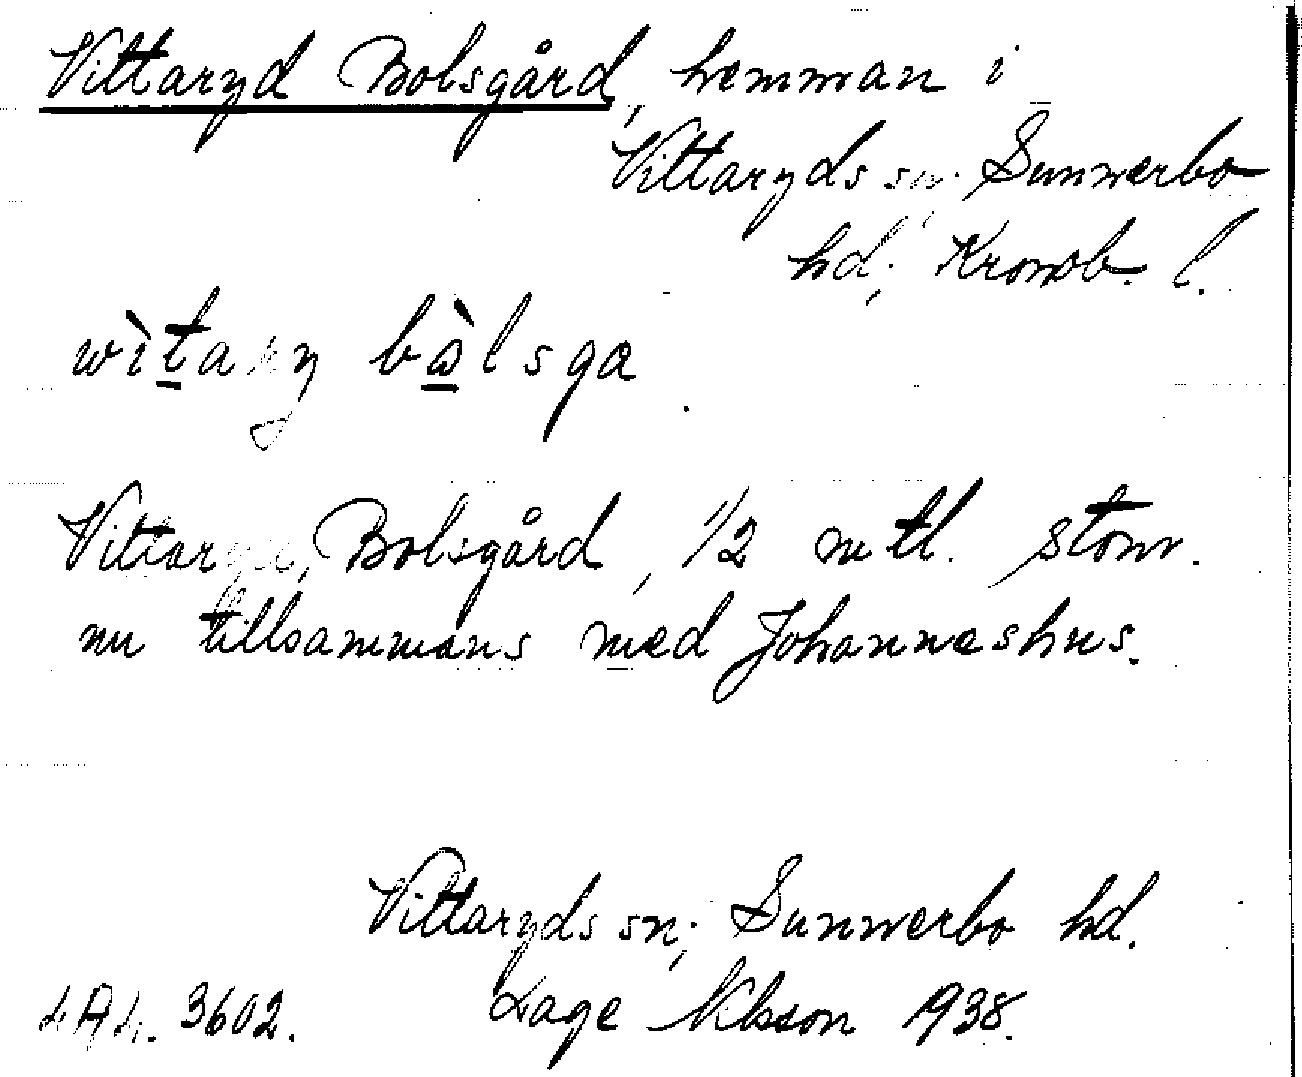 Vittaryd Bolsgård, hemman i
Vittaryds sn; Sunnerbo
hd; Kronob. l.
bòlsga
Vittaryd, Bolsgård, 1/2 mtl. stom.
nu tillsammans med Johanneshus.
Vittaryds sn; Sunnerbo hd.
LAL. 3602. Lage Nilsson 1938.